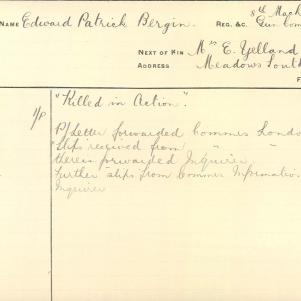 NAME Edward Patrick Bergin. REG. &C. 8th Mach
Gun Com
NEXT OF KIN Mrs E. Yelland
ADDRESS Meadows South
F
"Killed in Action".
P/Letter forwarded Commrs Londo
Slips received from " "
thereis forwarded Inquirer.
Further slips from Commrs Information
Inquirer